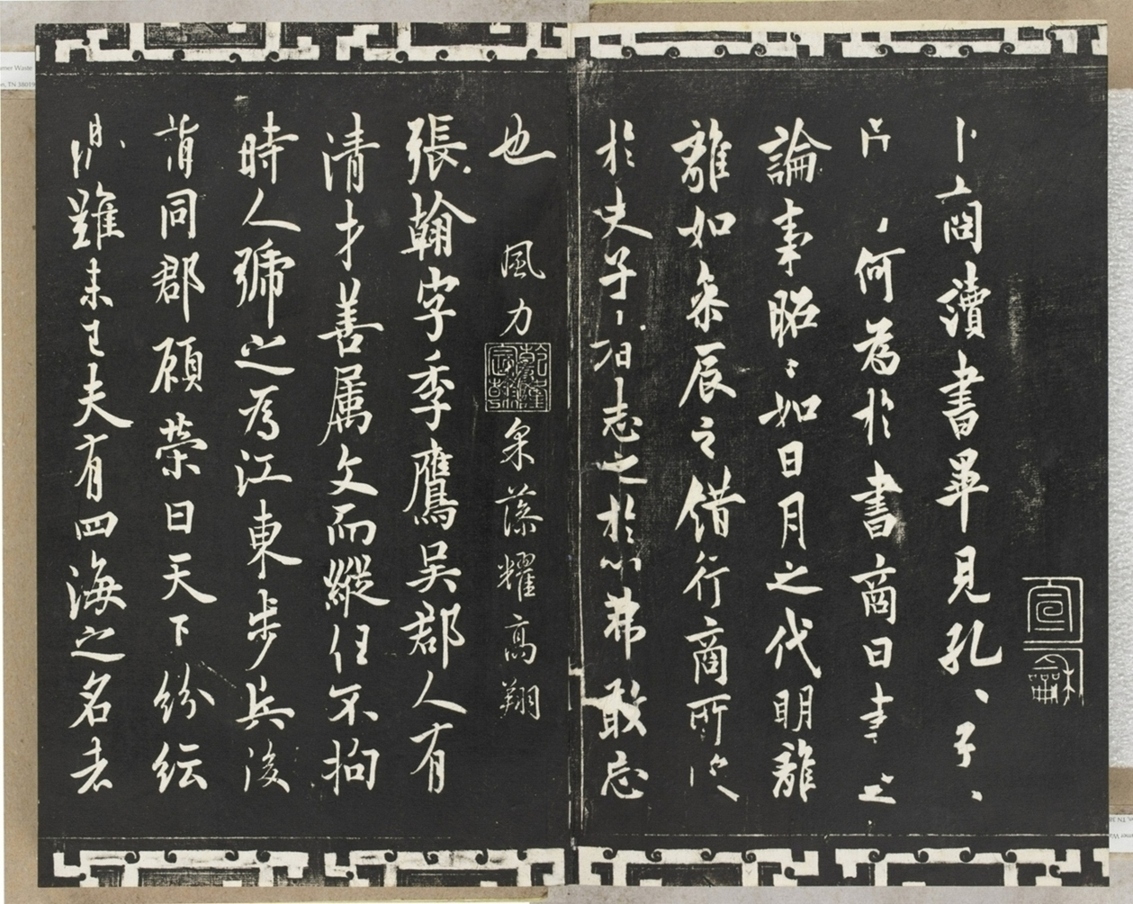 宣龢
卜商讀書畢見孔〻子〻
何為於書商曰書之
論事昭〻如日月之代明離
離如參辰之錯行商所
於夫子〻志之於心弗敢忘
也 風力 乾隆宸翰 采藻耀高翔
張翰字季鷹吳郡人有
清才善属文而縱任不拘
時人號之為江東步兵後
謂同郡顧榮曰天下紛紜
禍難未已夫有四海之名者